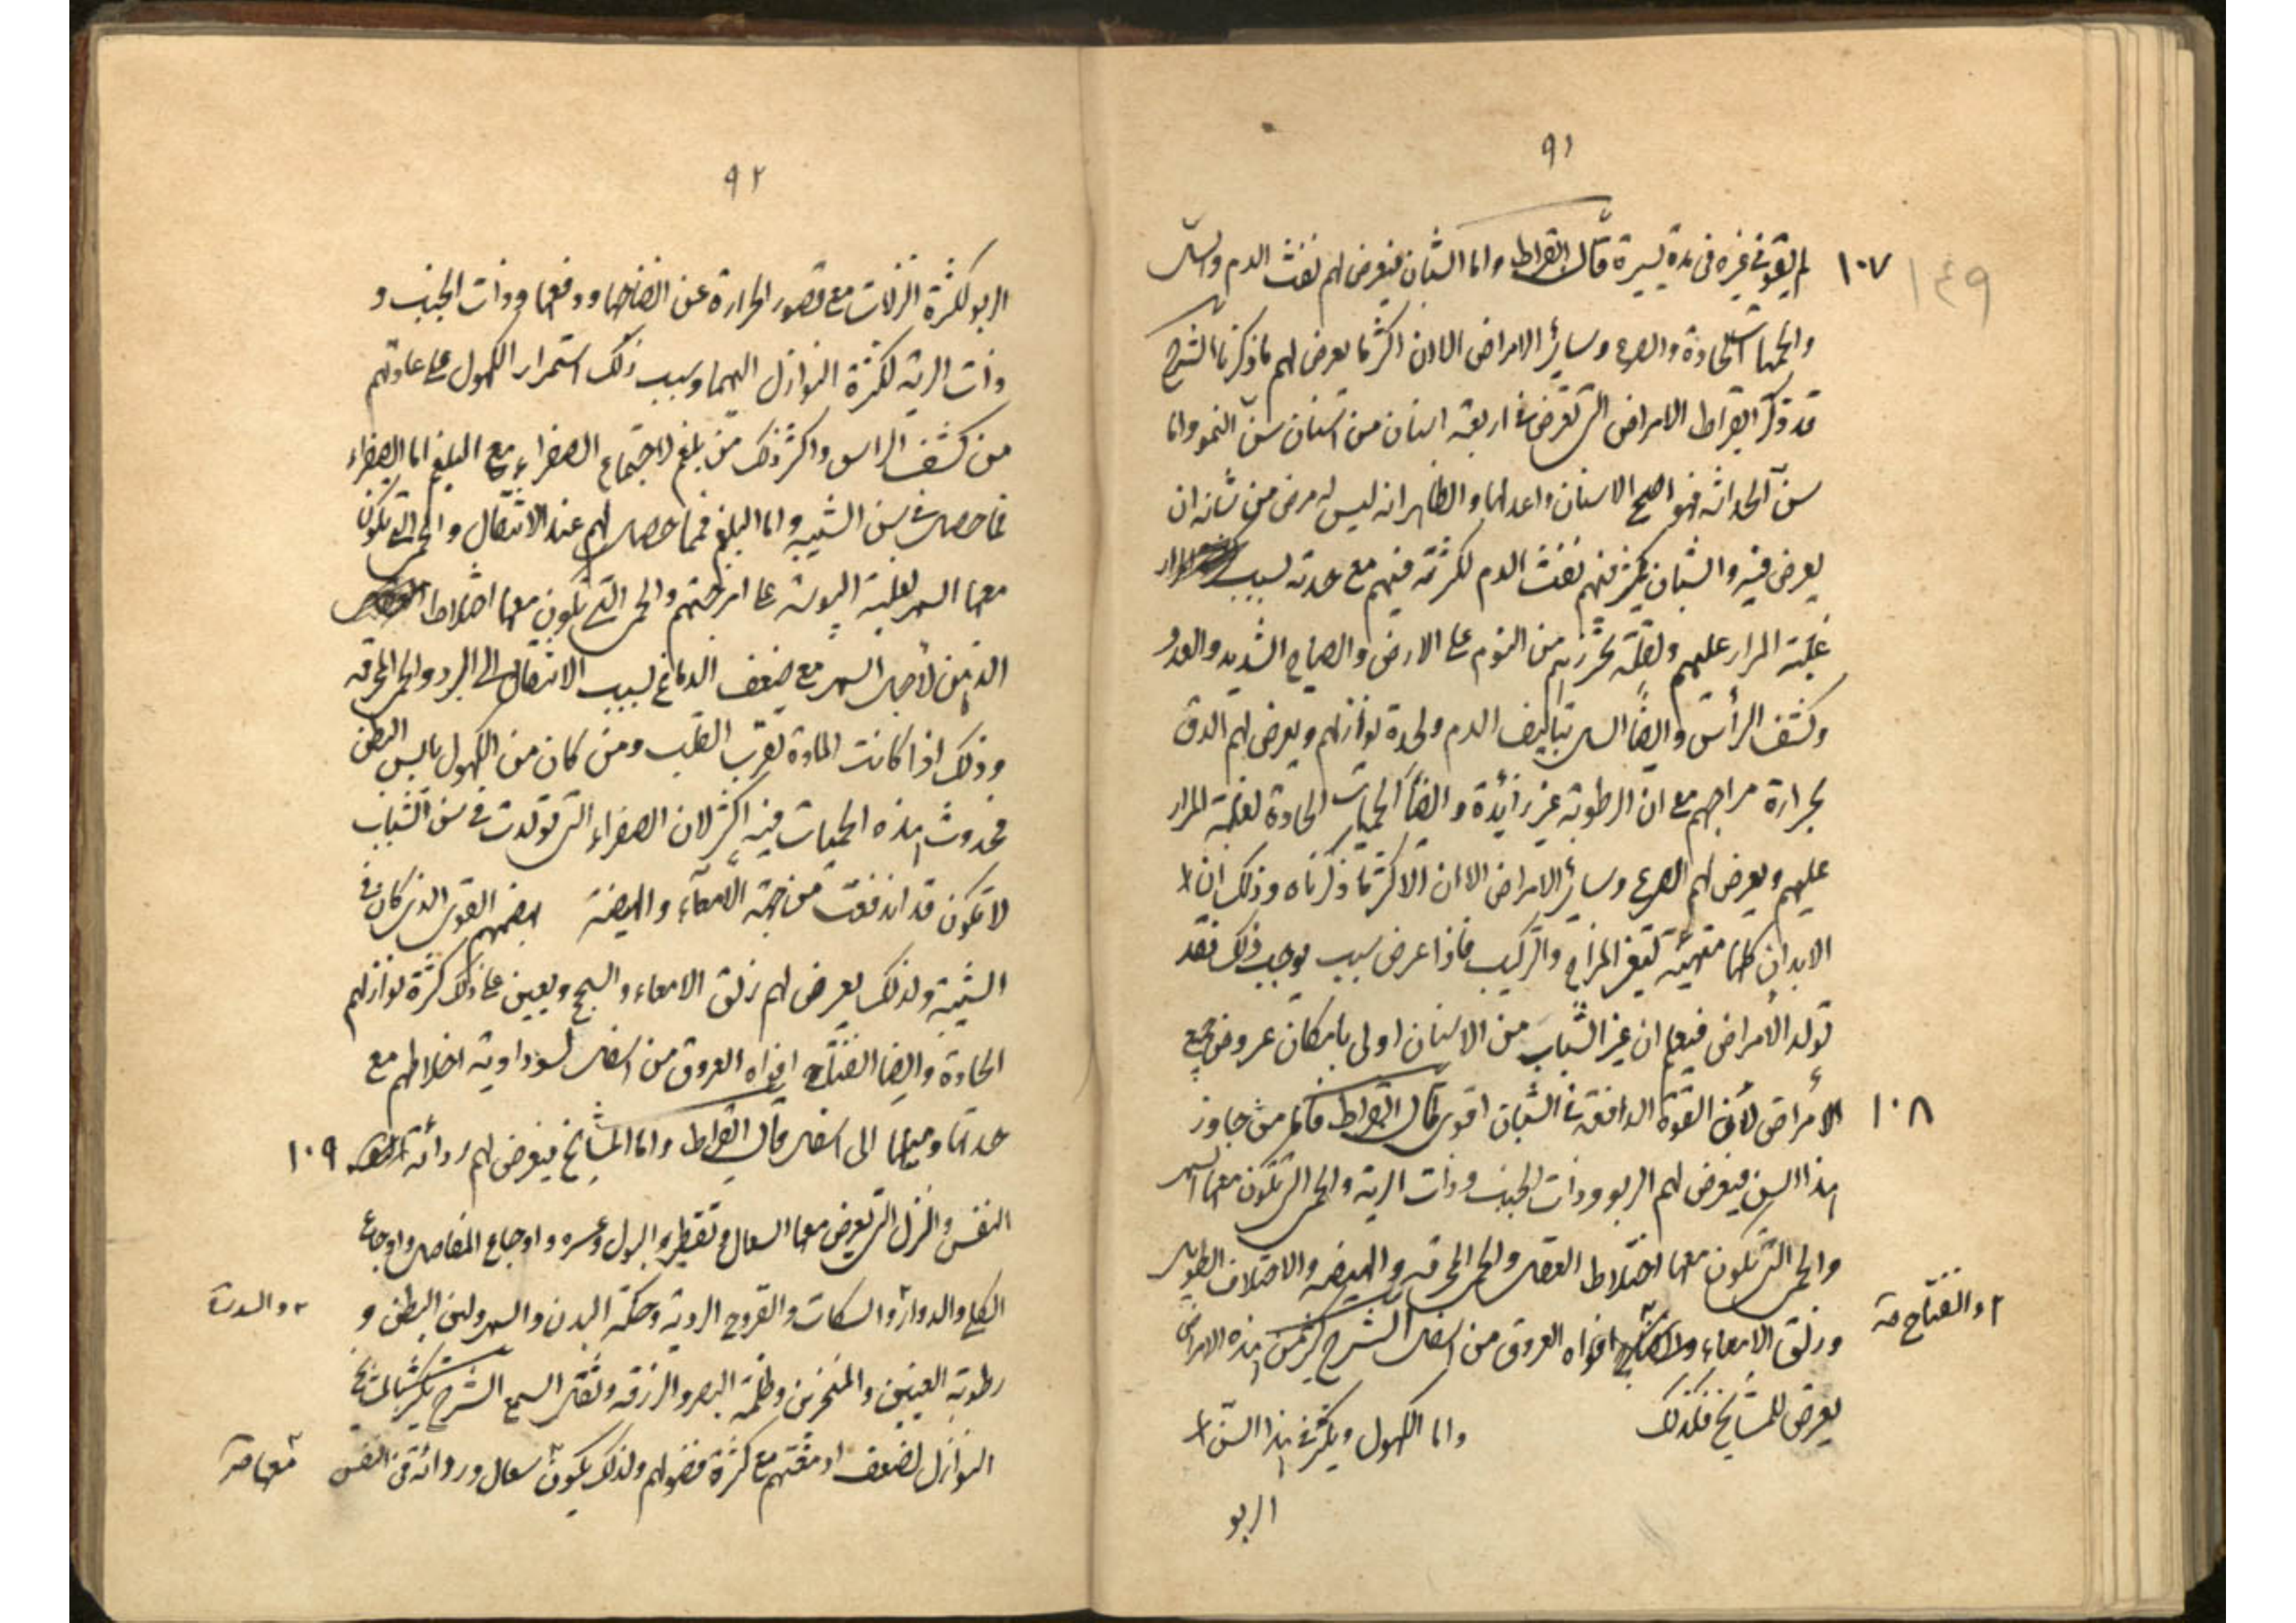 ٩١
لم يقو في غيره في مدة يسيرة قال ابقراط واما الشبان فيعرض لهم نفث الدم والسل
١٠٧
١٤٩
والحميات الحادة والصرع وسائر الامراض الا ان اكثر ما يعرض لهم ما ذكرنا الشرح
قد ذكر ابقراط الامراض التى تعرض في اربعة اسنان من اسنان سن النمو واما
سن الحداثة فهو اصح الاسنان واعدلها والظاهر انه ليس له مرض من شانه ان
يعرض فيه والشبان يكثر فيهم نفث الدم لكثرته فيهم مع حدته بسبب
غلبة المرار عليهم ولقلة تحرزهم من النوم على الارض والصياح الشديد والعدو
وكشف الرأس وايضا السل بتاليف الدم ولحدة نوازلهم ويعرض لهم الدق
لحرارة مزاجهم مع ان الرطوبة غير زائدة وايضا الحميات الحادة لغلبة المرار
عليهم ويعرض لهم الصرع وسائر الامراض الا ان الاكثر ما ذكرناه وذلك ان
الابدان كلها متهيئة لتغير المزاج والتركيب فاذا عرض سبب يوجب ذلك فقد
تولد الأمراض فيعلم ان غير الشباب من الاسنان اولى بامكان عروض جميع
الأمراض لأن القوة الدافعة في الشبان اقوى قال ابقراط فاما من جاوز
١٠٨
هذا السن فيعرض لهم الربو وذات الجنب وذات الرية والحمى التى تكون معها السهر
والحمى التى تكون معها اختلاط العقل والحمى المحرقة والهيضة والاختلاف الطويل
وزلق الامعاء افواه العروق من اسفل الشرح كثير من هذه الامراض
٢ وانفتاح صة
يعرض للمشايخ فلذلك واما الكهول ويكثر في هذا السن
الربو
٩٢
الربو لكثرة النزلات مع قصور الحرارة عن انضاجها ودفعها وذات الجنب و
وذات الرية لكثرة النوازل اليهما وسبب ذلك استمرار الكهول على عادتهم
من كشف الراس واكثر ذلك من بلغم لاجتماع الصفراء مع البلغم اما الصفراء
فما حصل في سن الشبيبة واما البلغم فمما حصل لهم عند الانتقال والحمى التى تكون
معها السهر لغلبة اليبوسة على امزجتهم والحمى التى تكون معها اختلاط
الذهن لأجل السهر مع ضعف الدماغ بسبب الانتقال الى البرد والحمى المحرقة
وذلك اذا كانت المادة بقرب القلب ومن كان من الكهول يابس البطن
فحدوث هذه الحميات فيه اكثر لان الصفراء التى تولدت في سن الشباب
لا تكون قد اندفعت من جهة الأمعاء والهيضة لهضمهم القوى الذى كان في
الشبيبة ولذلك يعرض لهم زلق الامعاء والسحج ويعين على ذلك كثرة نوازلهم
الحادة وايضا انفتاح افواه العروق من اسفل لسوداوية اخلاطهم مع
حدتها وميلها الى اسفل قال ابقراط واما المشايخ فيعرض لهم رداءة
١٠٩
النفس والنزل التى يعرض معها السعال وتقطير البول وعسره واوجاع المفاصل واوجاع
الكلى والدوار والسكات والقروح الردية وحكة البدن والسهر ولين البطن و
رطوبة العينين والمنخرين وظلمة البصر والزرقة وثقل السمع الشرح يكثر بالمشايخ
النوازل لضعف ادمغتهم مع كثرة فضولهم ولذلك يكون سعال ورداءة في النفس
معها صة